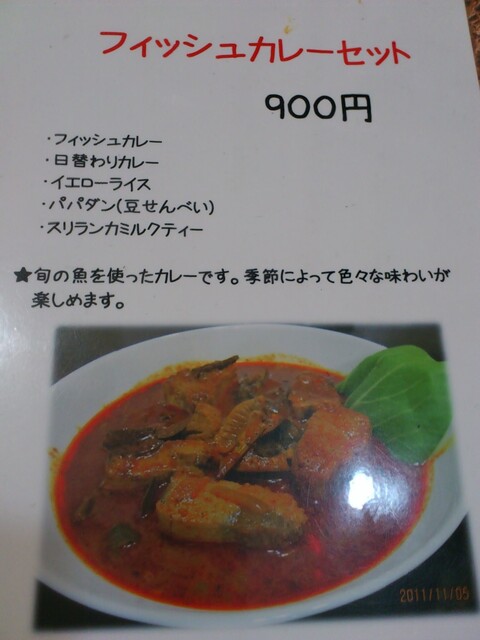 フィッシュカレーセット
900円
・フィッシュカレー
・日替わりカレー
・イエローライス
・パパダン(豆せんべい)
・スリランカミルクティー
★旬の魚を使ったカレーです。季節によって色々な味わいが
楽しめます。
2011/11/05